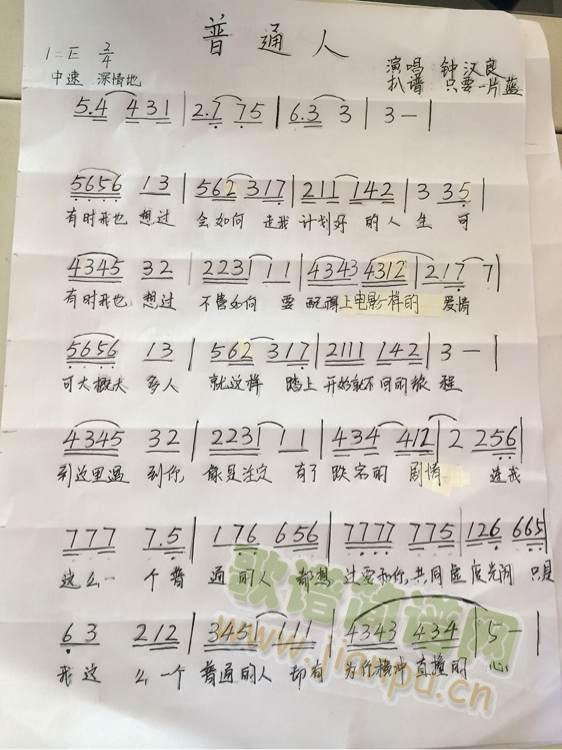 普通人
1=E 2/4 演唱 钟汉良
中速 深情地 扒谱 只要一片蓝
5.4 431 | 2.7 75 | 6.3 3 | 3 — |
5656 13 | 562 317 | 211 142 | 3 35 |
有时我也 想过 会如何 走我 计划好 的人 生 可
4345 32 | 2231 11 | 4343 4312 | 217 7 |
有时我也 想过 不管如何 要 配得上电影一样的 爱情
5656 13 | 562 317 | 2111 142 | 3 — |
可大概大 多人 就这样 踏上 开始就不同的旅 程
4345 32 | 2231 11 | 434 412 | 2 256 |
到这里遇 到你 像是注定 有了 跌宕的 剧情 连我
777 7.5 | 176 656 | 7777 775 | 126 665 |
这么一 个普 通的人 都想 过要和你 共同虚 度光阴 只是
6 3 212 | 345 111 | 4343 434 | 5 — |
我这 么一个 普通的人 却有 为你横冲 直撞的 心
歌谱简谱网
www.jianpu.cn